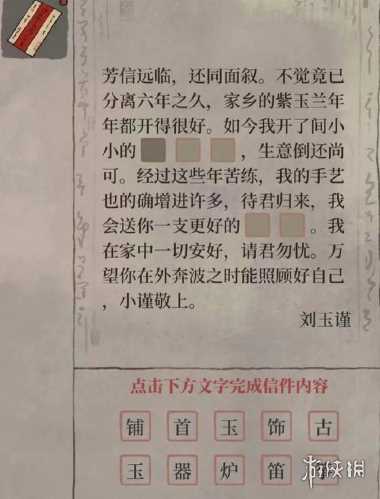 芳信远临，还同面叙。不觉竟已
分离六年之久，家乡的紫玉兰年
年都开得很好。如今我开了间小
小的，生意倒还尚
可。经过这些年苦练，我的手艺
也的确增进许多，待君归来，我
会送你一支更好的。我
在家中一切安好，请君勿忧。万
望你在外奔波之时能照顾好自己
，小谨敬上。
刘玉谨
点击下方文字完成信件内容
铺 首 玉 饰 古
玉 器 炉 笛
游侠网